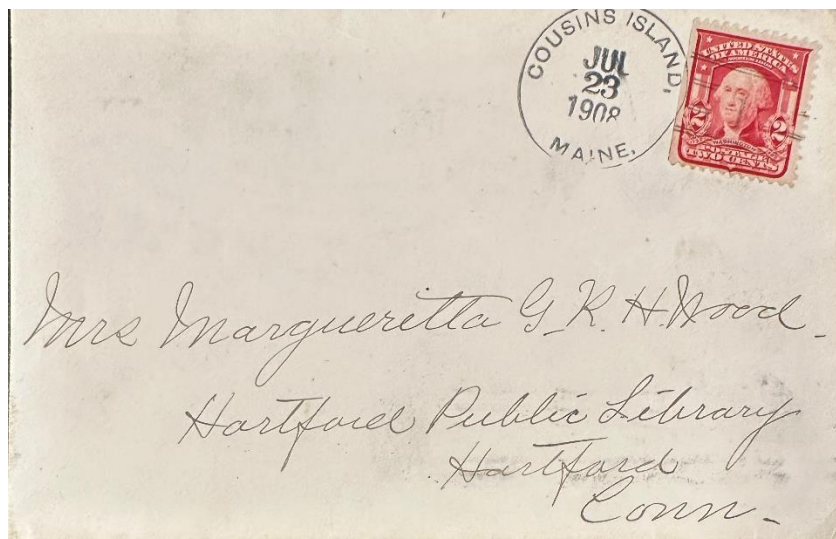 COUSINS ISLAND,
JUL
23
1908
MAINE.
UNITED STATES
OF AMERICA
2 WASHINGTON 2
TWO CENTS
Mrs Margueretta G. R. H. Wood.
Hartford Public Library
Hartford
Conn-